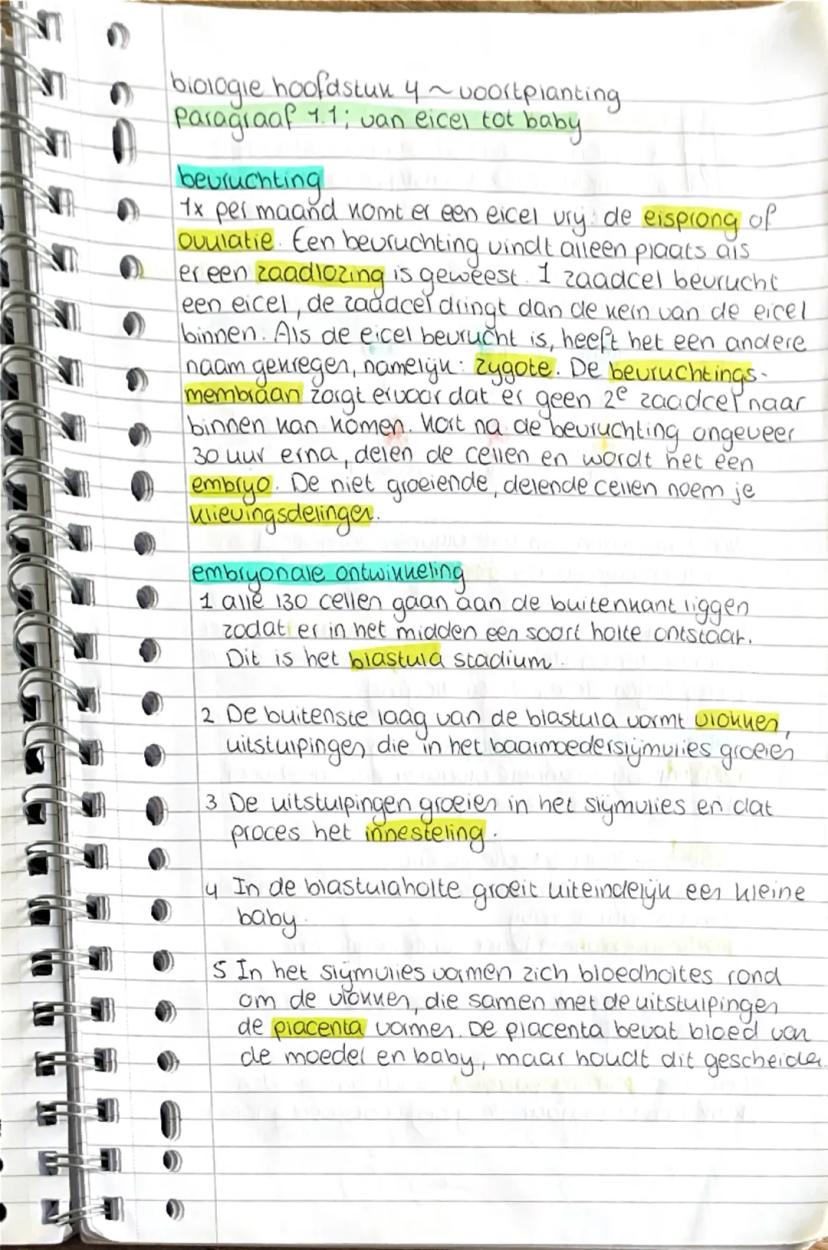 biologie hoofdstuk 4 ~ voortplanting
Paragraaf 1.1; van eicel tot baby
bevruchting
1x per maand komt er een eicel vrij: de eisprong of
ovulatie. Een bevruchting vindt alleen plaats als
er een zaadlozing is geweest. 1 zaadcel bevrucht
een eicel, de zaadcel dringt dan de kern van de eicel
binnen. Als de eicel bevrucht is, heeft het een andere
naam gekregen, namelijk: zygote. De bevruchtings-
membraan zorgt ervoor dat er geen 2e zaadcel naar
binnen kan komen. Kort na de bevruchting ongeveer
30 uur erna, delen de cellen en wordt het een
embryo. De niet groeiende, delende cellen noem je
klievingsdelingen.
embryonale ontwikkeling
1 alle 130 cellen gaan aan de buitenkant liggen
zodat er in het midden een soort holte ontstaat.
Dit is het blastula stadium.
2 De buitenste laag van de blastula vormt vlokken,
uitstulpingen die in het baarmoederslijmvlies groeien
3 De uitstulpingen groeien in het slijmvlies en dat
proces het innesteling.
4 In de blastulaholte groeit uiteindelijk een kleine
baby.
5 In het slijmvlies vormen zich bloedholtes rond
om de vlokken, die samen met de uitstulpingen
de placenta vormen. De placenta bevat bloed van
de moeder en baby, maar houdt dit gescheiden